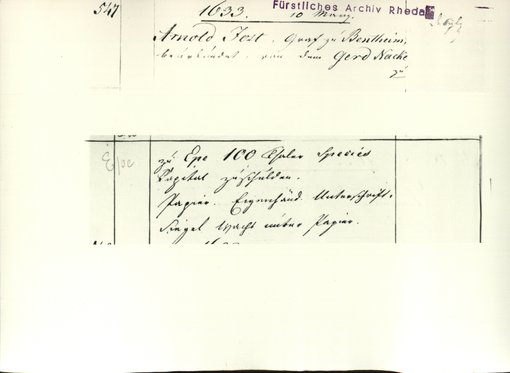 547
1633. 10 März.
Fürstliches Archiv Rheda
Arnold Jost, Graf zu Bentheim,
beurkundet, von dem Gerd Nacke
zu
Epe
zu Epe 100 Thaler Species
Capital zu schulden.
Papier. Eigenhänd. Unterschrift.
Siegel Wachs unter Papier.